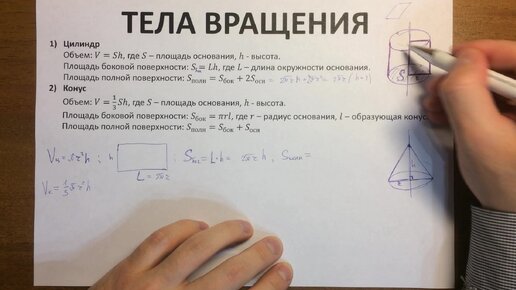 ТЕЛА ВРАЩЕНИЯ
1) Цилиндр
Объем: V = Sh, где S – площадь основания, h - высота.
Площадь боковой поверхности: Sбок = Lh, где L – длина окружности основания.
Площадь полной поверхности: Sполн = Sбок + 2Sосн
2) Конус
Объем: V = 1/3 Sh, где S – площадь основания, h - высота.
Площадь боковой поверхности: Sбок = πrl, где r – радиус основания, l – образующая конус
Площадь полной поверхности: Sполн = Sбок + Sосн
Vц = πr²h h Sбок = L·h = 2πrh, Sполн =
L = 2πr
Vк = 1/3 πr²h
S